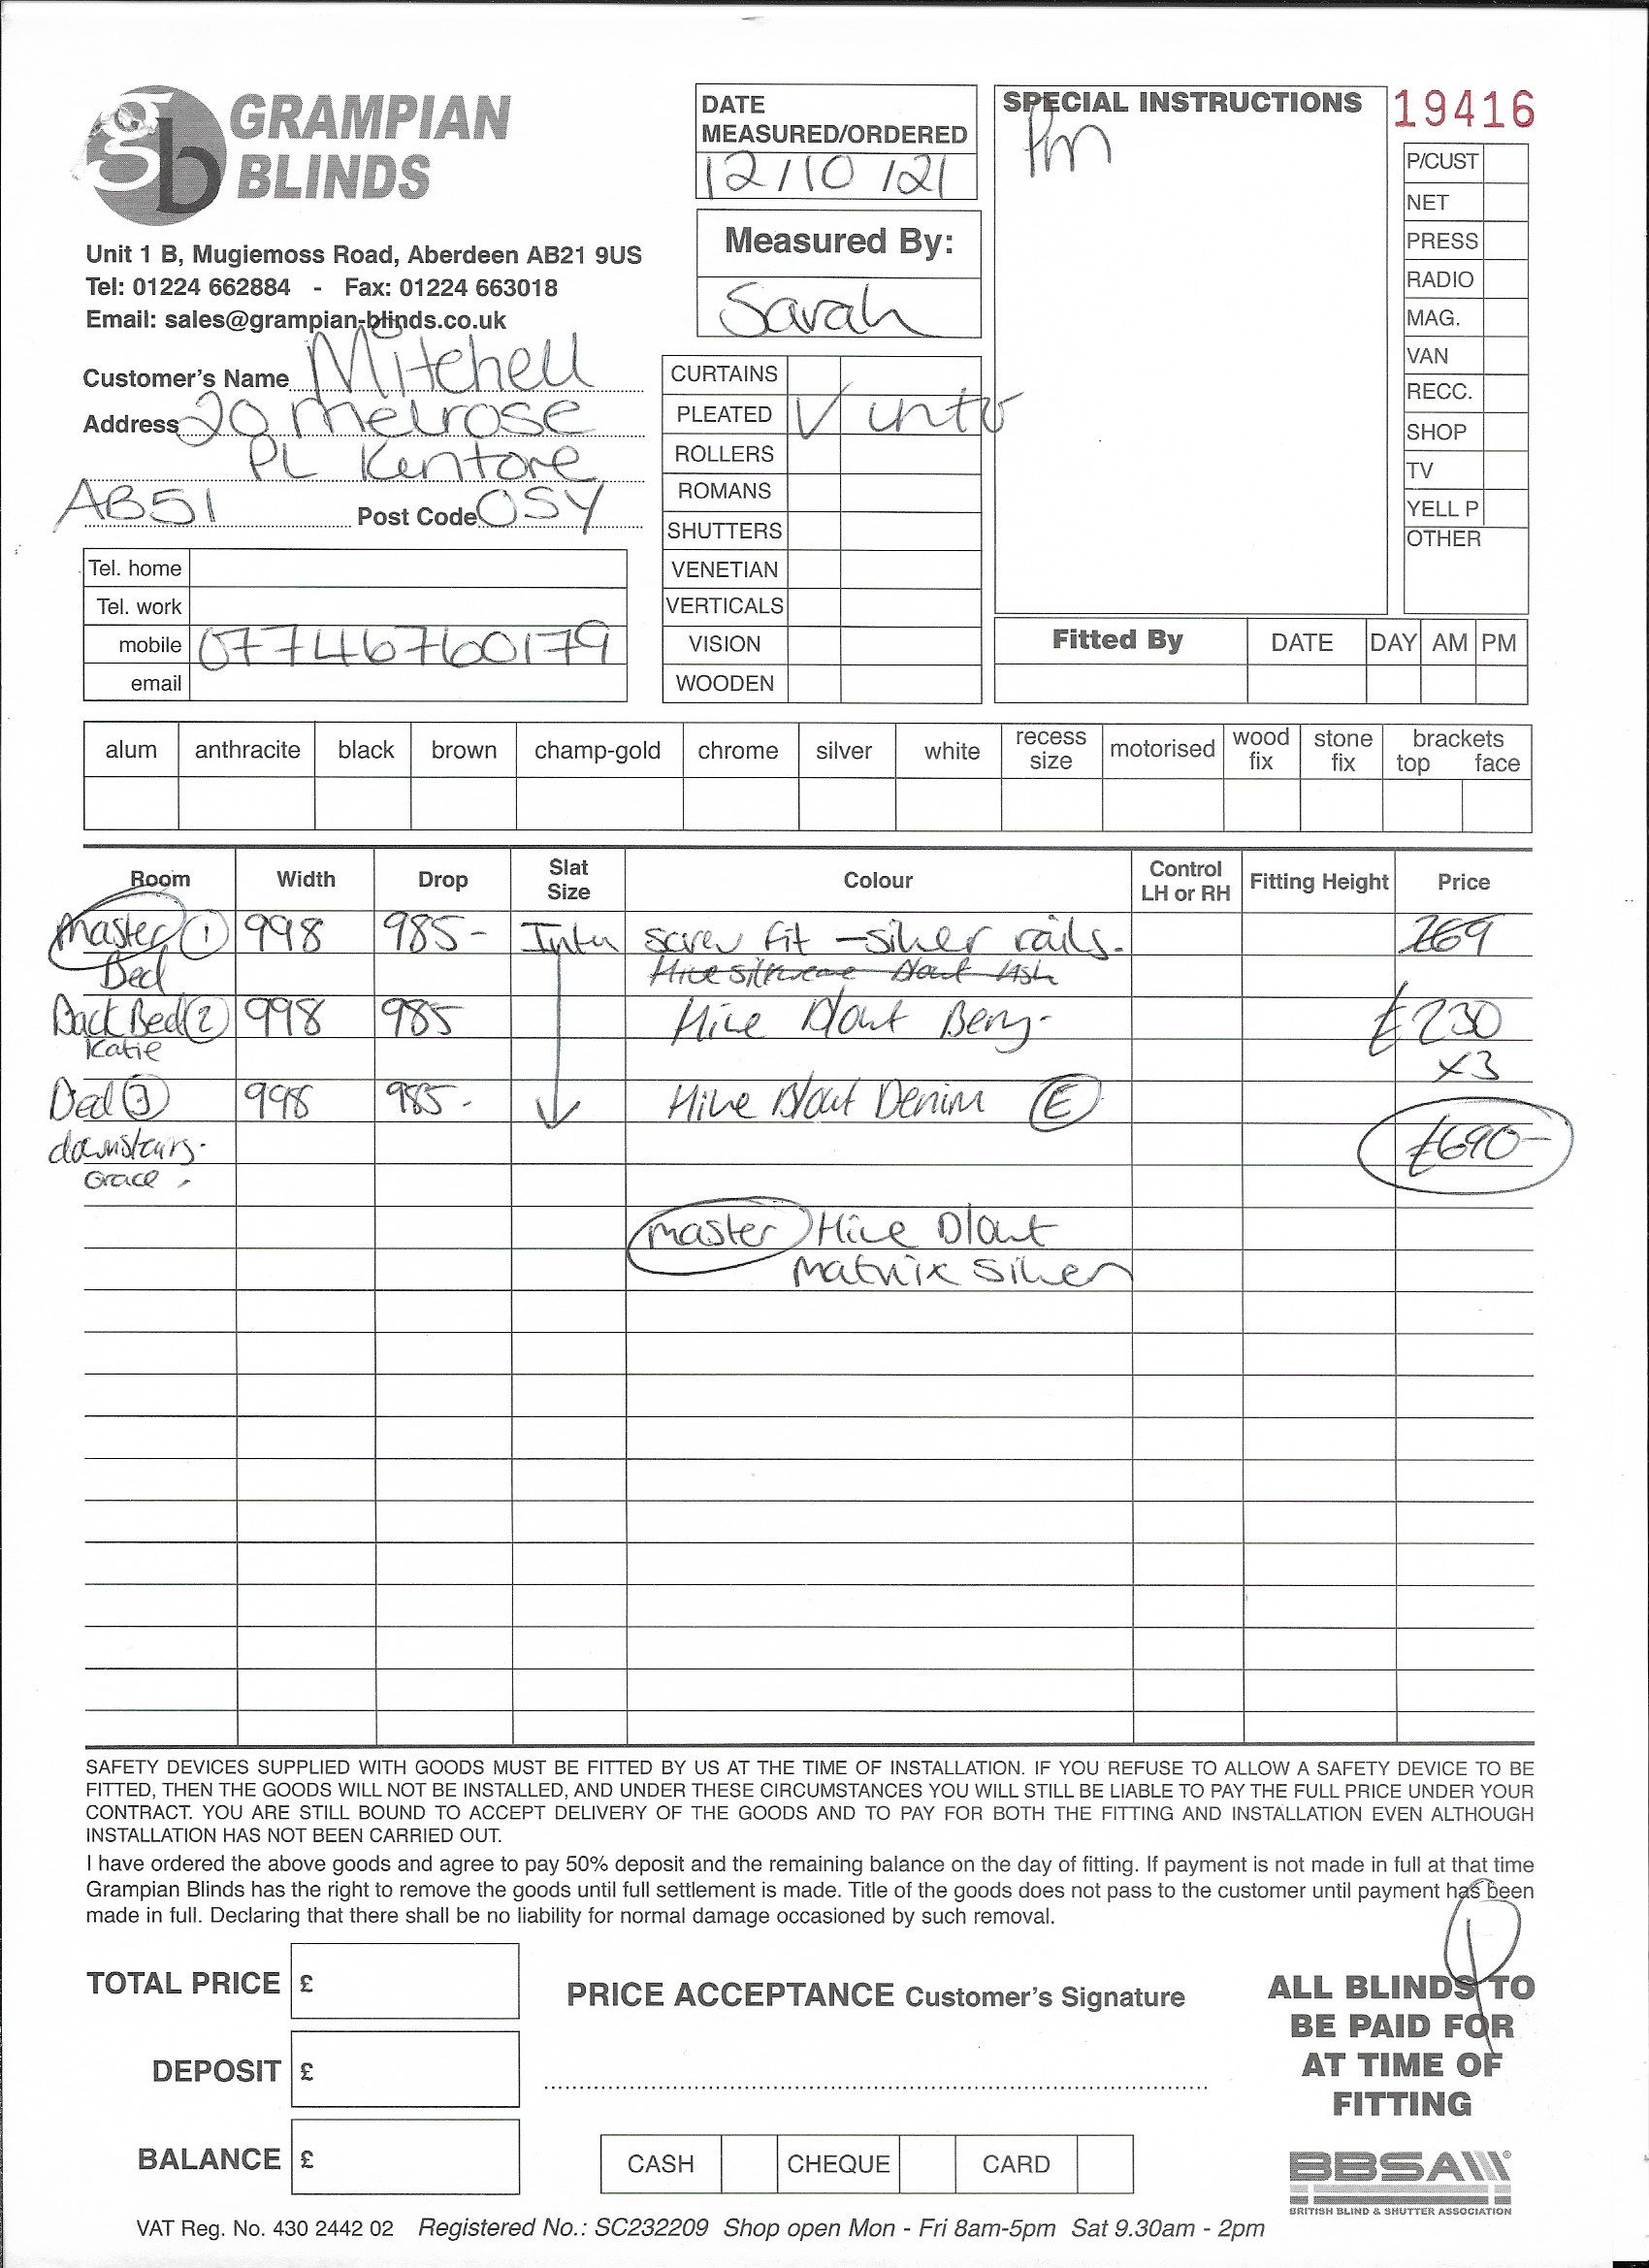 GRAMPIAN
BLINDS
Unit 1 B, Mugiemoss Road, Aberdeen AB21 9US
Tel: 01224 662884 - Fax: 01224 663018
Email: sales@grampian-blinds.co.uk
Customer's Name Mitchell
Address 20 Melrose
PL Kintore
AB51 Post Code 0SY
Tel. home
Tel. work
mobile 07746760179
email
DATE
MEASURED/ORDERED
12/10/21
Measured By:
Sarah
CURTAINS
PLEATED ✓ intu
ROLLERS
ROMANS
SHUTTERS
VENETIAN
VERTICALS
VISION
WOODEN
SPECIAL INSTRUCTIONS
Pm
19416
P/CUST
NET
PRESS
RADIO
MAG.
VAN
RECC.
SHOP
TV
YELL P
OTHER
Fitted By DATE DAY AM PM
alum anthracite black brown champ-gold chrome silver white recess size motorised wood fix stone fix brackets top face
Room Width Drop Slat Size Colour Control LH or RH Fitting Height Price
Master 1 998 985- Intu screw fit - silver rails. 269
Bed
Back Bed 2 998 985 Hive Blout Berry. £230
Katie x3
Bed 3 998 985. Hive Blout Denim E
downstairs. £690-
Grace
master Hive Blout
Matrix Silver
SAFETY DEVICES SUPPLIED WITH GOODS MUST BE FITTED BY US AT THE TIME OF INSTALLATION. IF YOU REFUSE TO ALLOW A SAFETY DEVICE TO BE
FITTED, THEN THE GOODS WILL NOT BE INSTALLED, AND UNDER THESE CIRCUMSTANCES YOU WILL STILL BE LIABLE TO PAY THE FULL PRICE UNDER YOUR
CONTRACT. YOU ARE STILL BOUND TO ACCEPT DELIVERY OF THE GOODS AND TO PAY FOR BOTH THE FITTING AND INSTALLATION EVEN ALTHOUGH
INSTALLATION HAS NOT BEEN CARRIED OUT.
I have ordered the above goods and agree to pay 50% deposit and the remaining balance on the day of fitting. If payment is not made in full at that time
Grampian Blinds has the right to remove the goods until full settlement is made. Title of the goods does not pass to the customer until payment has been
made in full. Declaring that there shall be no liability for normal damage occasioned by such removal.
TOTAL PRICE £
DEPOSIT £
BALANCE £
PRICE ACCEPTANCE Customer's Signature
CASH CHEQUE CARD
P
ALL BLINDS TO
BE PAID FOR
AT TIME OF
FITTING
BBSA
BRITISH BLIND & SHUTTER ASSOCIATION
VAT Reg. No. 430 2442 02 Registered No.: SC232209 Shop open Mon - Fri 8am-5pm Sat 9.30am - 2pm